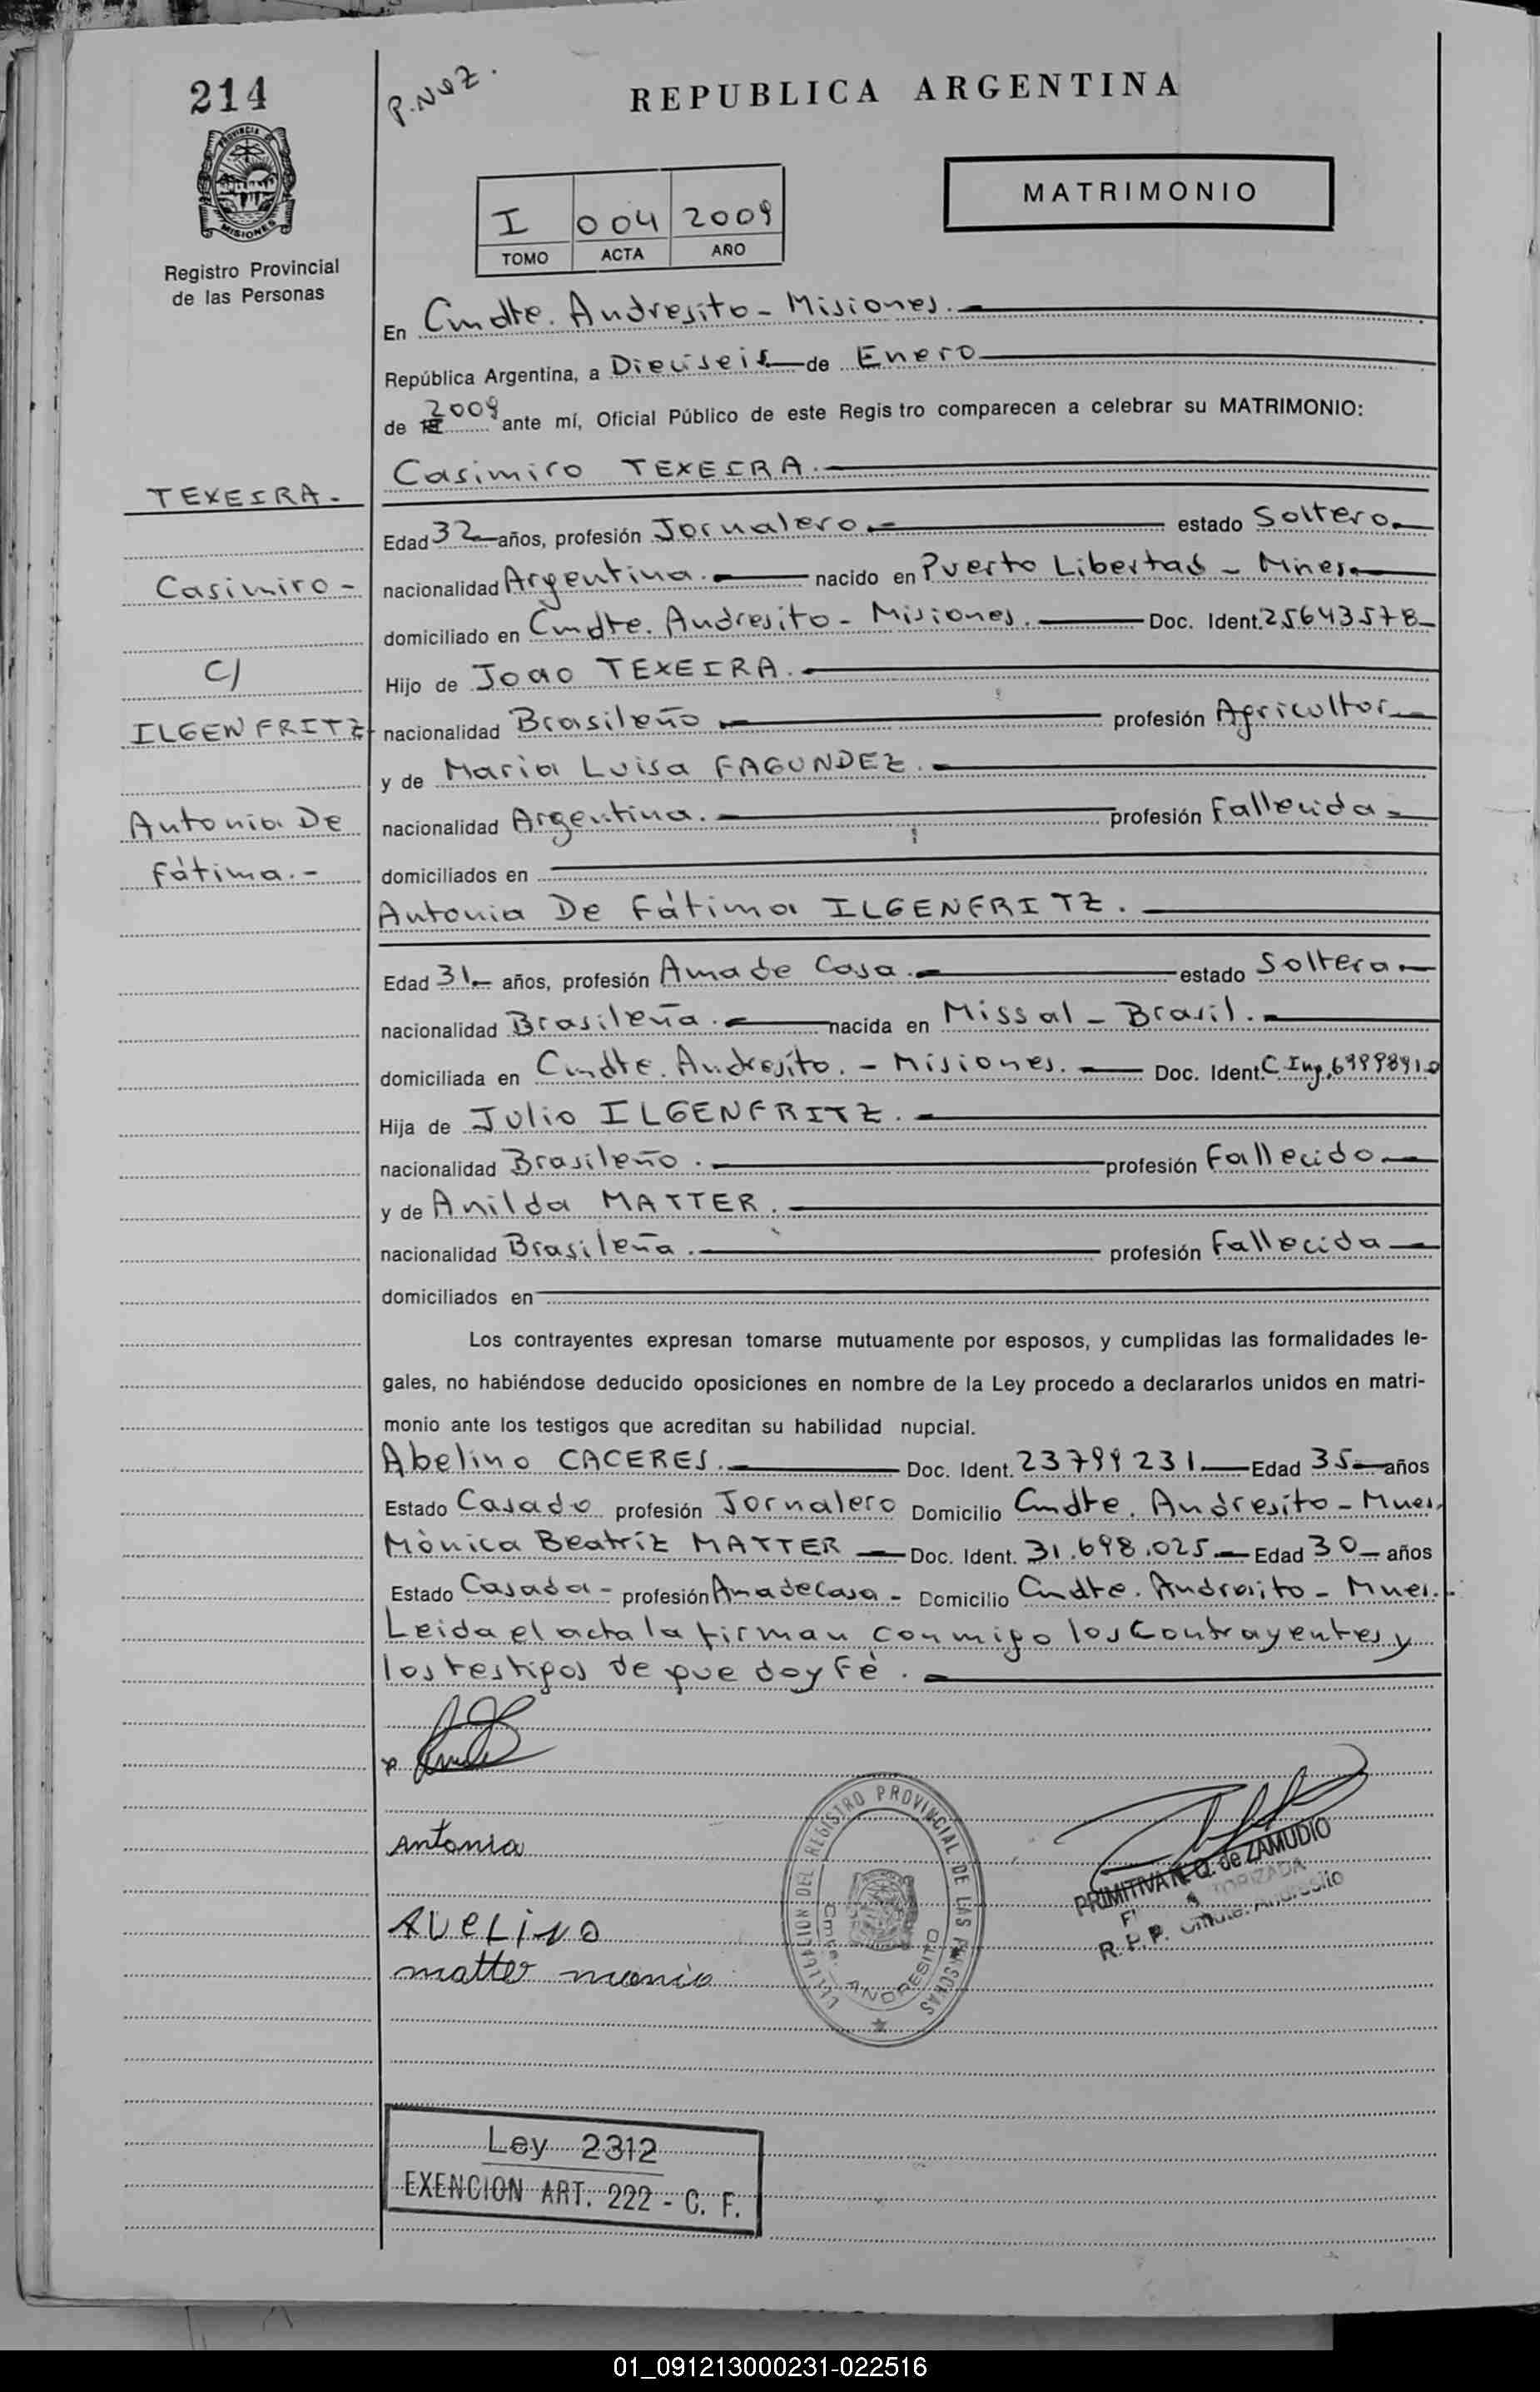 214
P.NUZ.
REPUBLICA ARGENTINA
PROVINCIA DE
MISIONES
Registro Provincial
de las Personas
MATRIMONIO
I 004 2009
TOMO ACTA AÑO
En Cmdte. Andresito - Misiones.
República Argentina, a Dieciseis de Enero
de 2009 ante mí, Oficial Público de este Regis tro comparecen a celebrar su MATRIMONIO:
Casimiro TEXEIRA.
TEXEIRA.-
Edad 32 años, profesión Jornalero.- estado Soltero.
Casimiro - nacionalidad Argentina. nacido en Puerto Libertad - Mnes.
domiciliado en Cmdte. Andresito - Misiones. Doc. Ident. 25643578
C/
Hijo de Joao TEXEIRA.
ILGENFRITZ nacionalidad Brasileño profesión Agricultor
y de Maria Luisa FAGUNDEZ.
Antonia De nacionalidad Argentina. profesión Fallecida
Fátima.- domiciliados en
Antonia De Fátima ILGENFRITZ.
Edad 31 años, profesión Ama de Casa. estado Soltera
nacionalidad Brasileña. nacida en Missal - Brasil.
domiciliada en Cmdte. Andresito. - Misiones. Doc. Ident. C Ing.
Hija de Julio ILGENFRITZ.
nacionalidad Brasileño. profesión Fallecido
y de Anilda MATTER.
nacionalidad Brasileña. profesión Fallecida
domiciliados en
Los contrayentes expresan tomarse mutuamente por esposos, y cumplidas las formalidades le-
gales, no habiéndose deducido oposiciones en nombre de la Ley procedo a declararlos unidos en matri-
monio ante los testigos que acreditan su habilidad nupcial.
Abelino CACERES. Doc. Ident. 23799231 Edad 35 años
Estado Casado profesión Jornalero Domicilio Cmdte. Andresito - Mnes.
Mònica Beatriz MATTER Doc. Ident. 31.698.025 Edad 30 años
Estado Casada - profesión Ama de Casa - Domicilio Cmdte. Andresito - Mnes.
Leida el acta la firman conmigo los Contrayentes y
los testigos de que doy Fè.
Antonia
AVELINO
matter monia
DEL REGISTRO PROVINCIAL DE LAS PERSONAS
Cmte. ANDRESITO
PRIMITIVA N. Q. de ZAMUDIO
R. P. P. Cmdte. Andresito
Ley 2312
EXENCION ART. 222 - C. F.
01_091213000231-022516